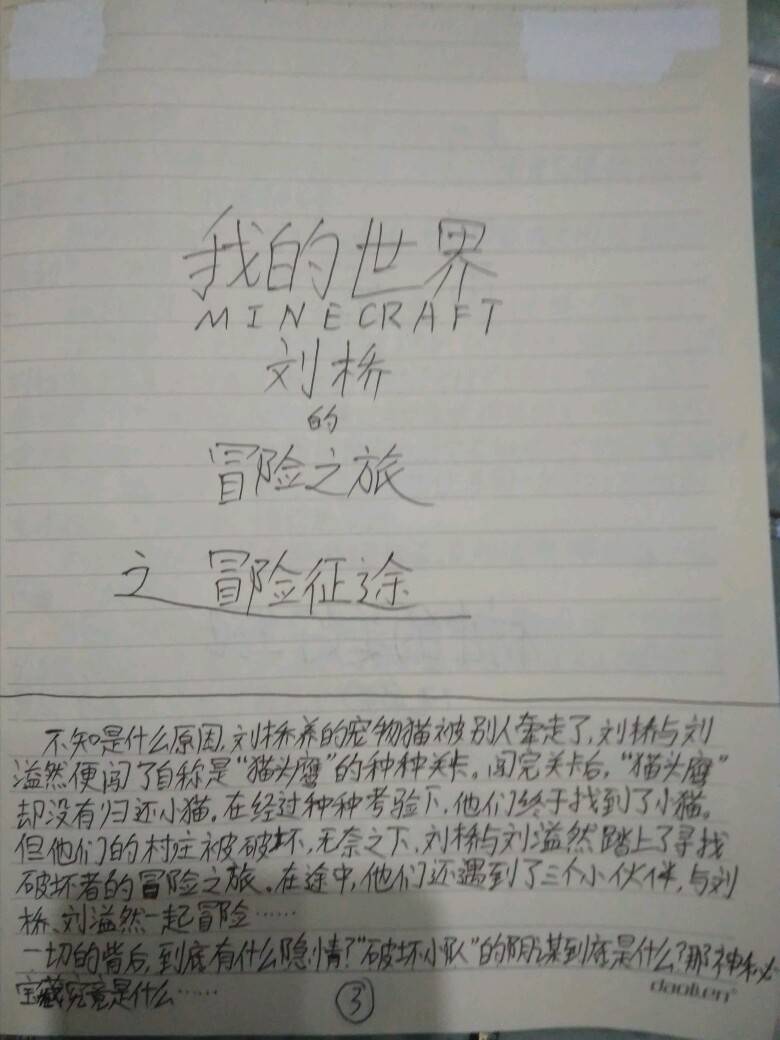 我的世界
MINECRAFT
刘桥
的
冒险之旅
之 冒险征途
不知是什么原因,刘桥养的宠物猫被别人牵走了,刘桥与刘
溢然便闯了自称是“猫头鹰”的种种关卡。闯完关卡后,“猫头鹰”
却没有归还小猫。在经过种种考验下,他们终于找到了小猫。
但他们的村庄被破坏,无奈之下,刘桥与刘溢然踏上了寻找
破坏者的冒险之旅。在途中,他们还遇到了三个小伙伴,与刘
桥、刘溢然一起冒险……
一切的背后,到底有什么隐情?“破坏小队”的阴谋到底是什么?那神秘
宝藏究竟是什么……
③
daolien